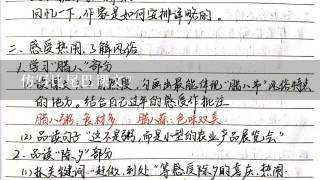 回忆一下，作家是如何安排详略的。
二、感受热闹，了解风俗
1. 学习“腊八”部分
勾画出最能体现“腊八节”风俗特点
的地方。结合自己过年的感受作批注
腊八粥：食材多 腊八蒜：色味双美
(2) 品读句子“这不是粥，而是小型的农业产品展览会”
2. 品读“除夕”部分
(1) 抓关键词“赶做、到处”等感受除夕的喜庆、热闹